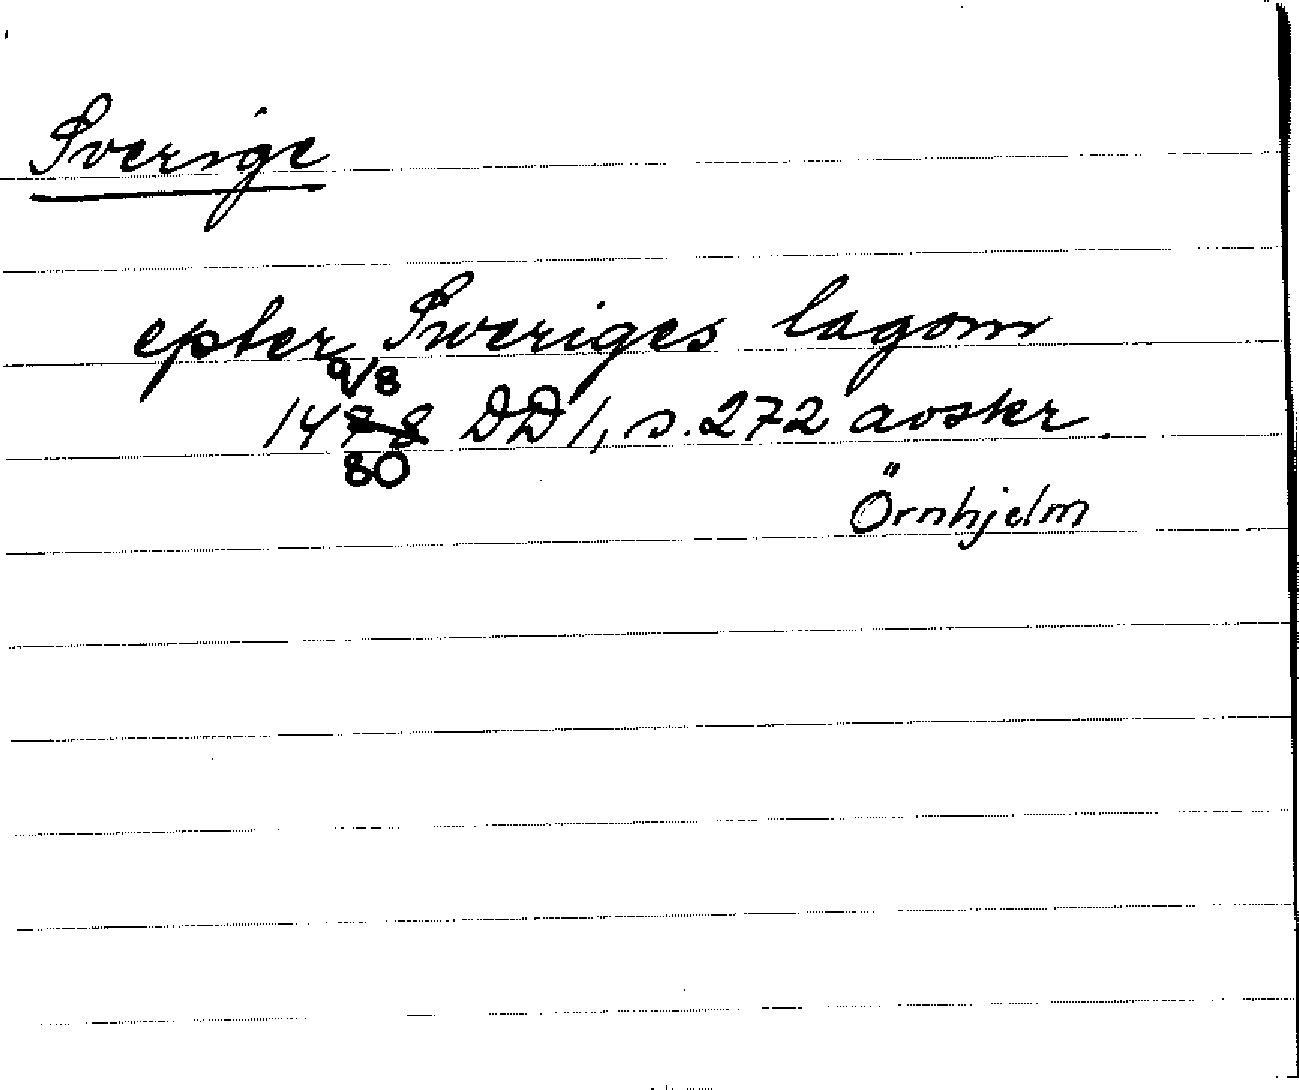 Sverige
epter Sweriges lagom
9/8
1478 DD 1, s. 272 avskr.
80
Örnhjelm